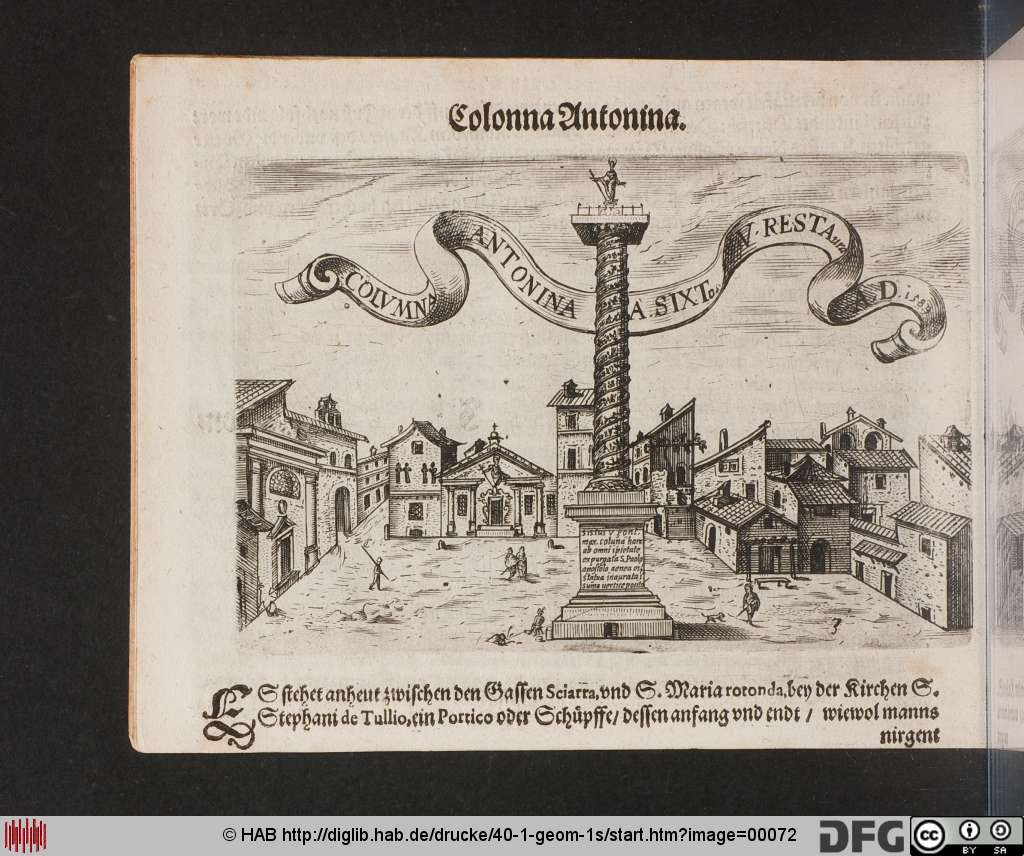 Colonna Antonina.
COLVMNA ANTONINA A. SIXTo. V. RESTA A.D. 1589
SISTUS V PONT.
max. coluna hanc
ab omni ipietate
expurgata S. Paolo
apostolo aenea ei,
statua inaurata i
suma vertice posita
ES stehet anheut zwischen den Gassen Sciarra, vnd S. Maria rotonda, bey der Kirchen S.
Stephani de Tullio, ein Portico oder Schüpffe / dessen anfang vnd endt / wiewol manns
nirgent
© HAB http://diglib.hab.de/drucke/40-1-geom-1s/start.htm?image=00072
DFG
cc
BY SA